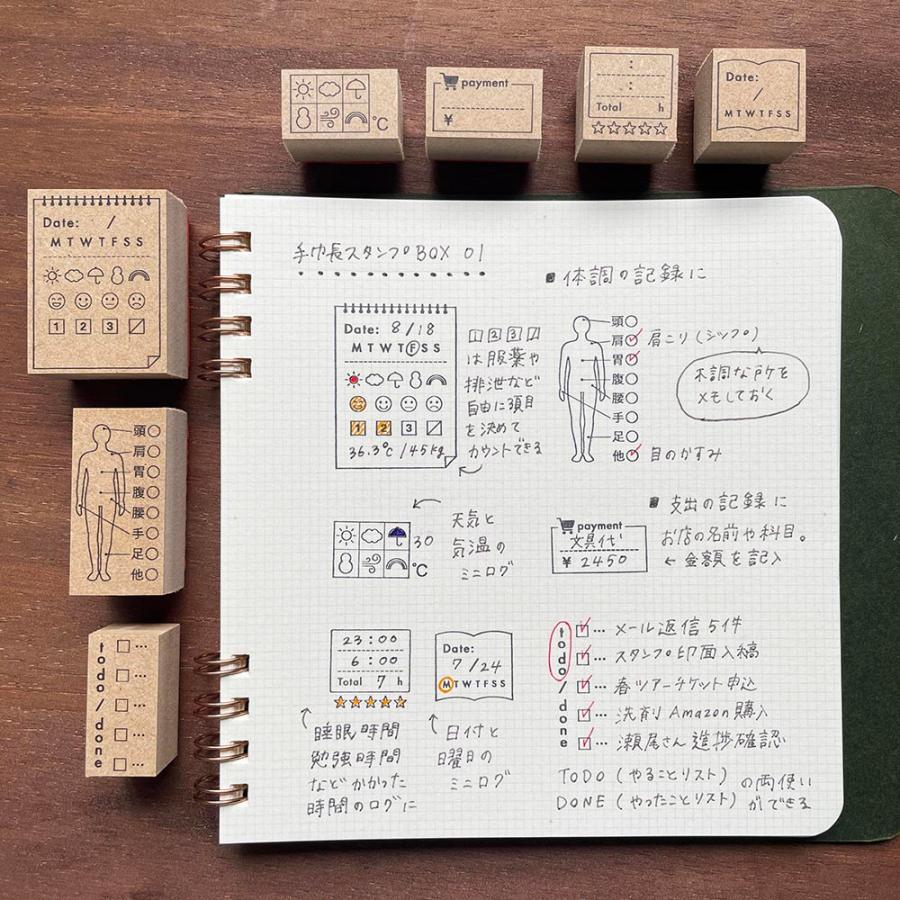 ℃
payment
¥
:
:
Total h
Date:
/
MTWTFSS
Date: /
MTWTFSS
1 2 3
頭
肩
胃
腹
腰
手
足
他
todo/done
手帖スタンプBOX 01
Date: 8/18
MTWTFSS
1 2 3
36.3℃/45kg
1 2 3
は服薬や
排泄など
自由に3項目
を決めて
カウントできる
30
℃
天気と
気温の
ミニログ
23:00
6:00
Total 7 h
睡眠時間
勉強時間
などかかった
時間のログに
Date:
7/24
MTWTFSS
日付と
曜日の
ミニログ
■体調の記録に
頭
肩 肩こり(シップ)
胃
腹
腰
手
足
他 目のかすみ
不調な所を
メモしておく
■支出の記録に
payment
文具代
¥ 2450
お店の名前や科目。
←金額を記入
todo/done
… メール返信5件
… スタンプ印面入稿
… 春ツアーチケット申込
… 洗剤Amazon購入
… 瀬尾さん進捗確認
TODO(やることリスト)の両使い
DONE(やったことリスト)ができる